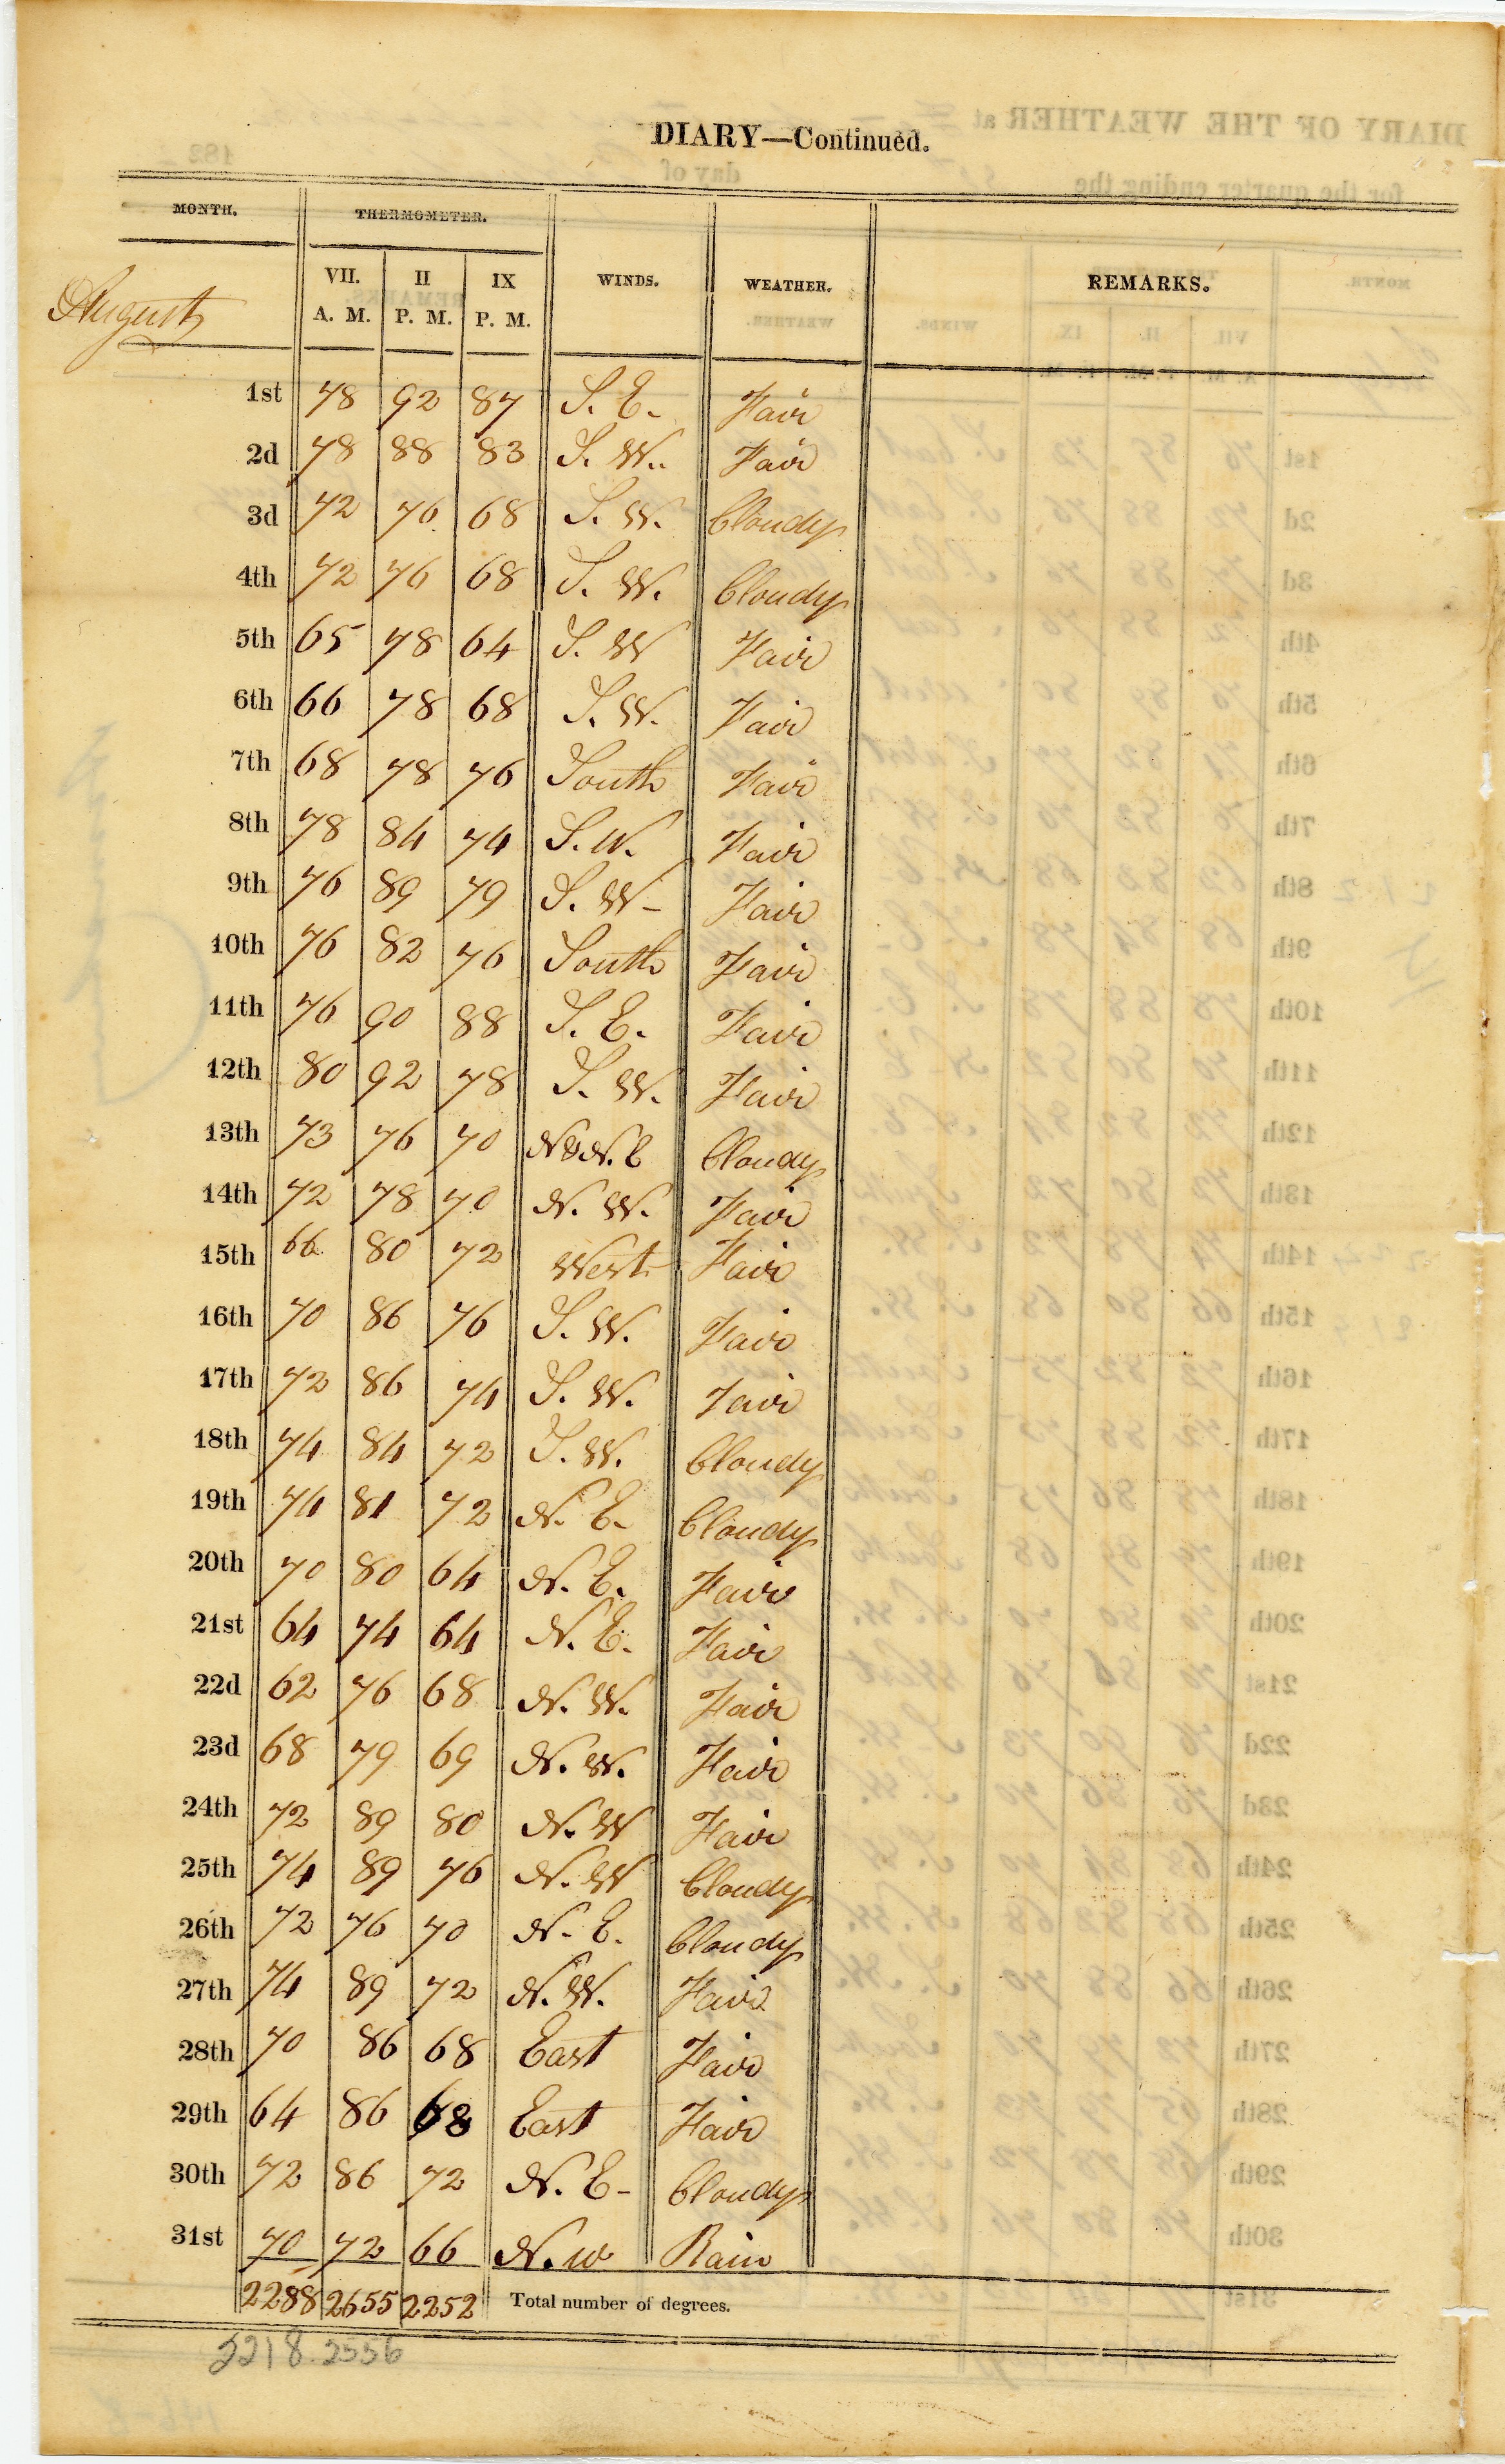 DIARY—Continued.
MONTH. THERMOMETER. WINDS. WEATHER. REMARKS.
VII. A. M. II P. M. IX P. M.
August
1st 78 92 87 S. E. Fair
2d 78 88 83 S. W. Fair
3d 72 76 68 S. W. Cloudy
4th 72 76 68 S. W. Cloudy
5th 65 78 64 S. W Fair
6th 66 78 68 S. W. Fair
7th 68 78 76 South Fair
8th 78 84 74 S. W. Fair
9th 76 89 79 S. W Fair
10th 76 82 76 South Fair
11th 76 90 88 S. E. Fair
12th 80 92 78 S. W. Fair
13th 73 76 70 Cloudy
14th 72 78 70 N. W. Fair
15th 66 80 72 West Fair
16th 70 86 76 S. W. Fair
17th 72 86 74 S. W. Fair
18th 74 84 72 S. W. Cloudy
19th 74 81 72 N. E. Cloudy
20th 70 80 64 N. E. Fair
21st 64 74 64 N. E. Fair
22d 62 76 68 N. W. Fair
23d 68 79 69 N. W. Fair
24th 72 89 80 N. W Fair
25th 74 89 76 N. W Cloudy
26th 72 76 70 N. E. Cloudy
27th 74 89 72 N. W. Fair
28th 70 86 68 East Fair
29th 64 86 68 East Fair
30th 72 86 72 N. E- Cloudy
31st 70 72 66 N. W Rain
2288 2655 2252 Total number of degrees.
2218. 2556